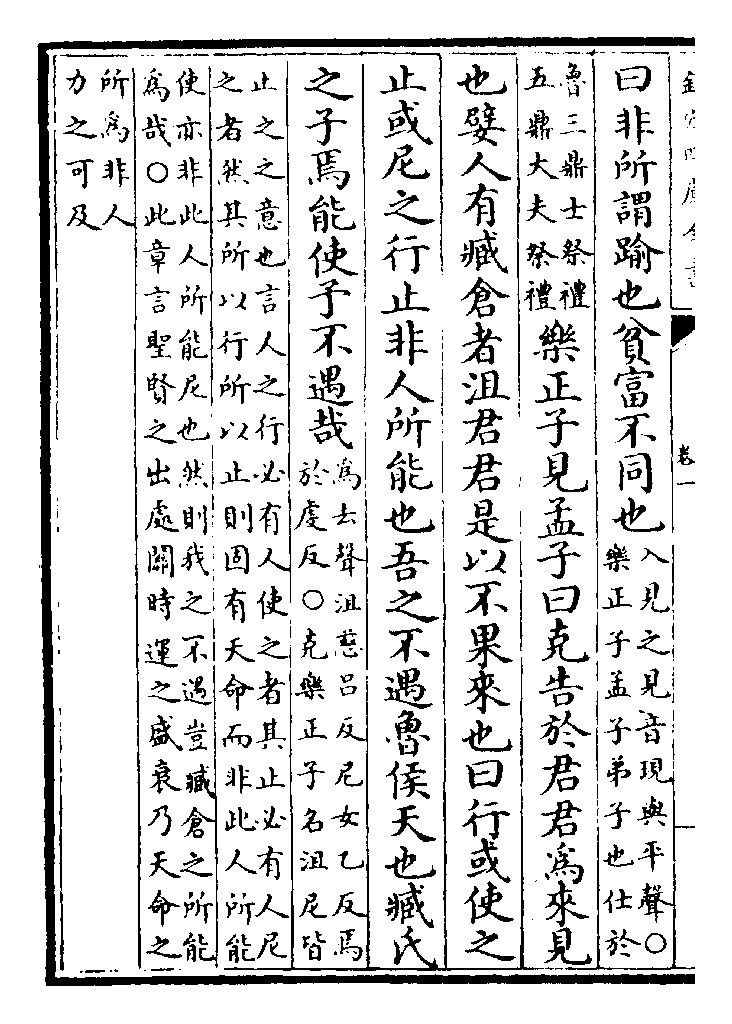 欽定四庫全書
卷一
曰非所謂踰也貧富不同也入見之見音現與平聲○樂正子孟子弟子也仕於
魯三鼎士祭禮五鼎大夫祭禮樂正子見孟子曰克告於君君為來見
也嬖人有臧倉者沮君君是以不果來也曰行或使之
止或尼之行止非人所能也吾之不遇魯侯天也臧氏
之子焉能使予不遇哉為去聲沮慈呂反尼女乙反焉於虔反○克樂正子名沮尼皆
止之之意也言人之行必有人使之者其止必有人尼
之者然其所以行所以止則固有天命而非此人所能
使亦非此人所能尼也然則我之不遇豈臧倉之所能
為哉○此章言聖賢之出處關時運之盛衰乃天命之
所為非人
力之可及